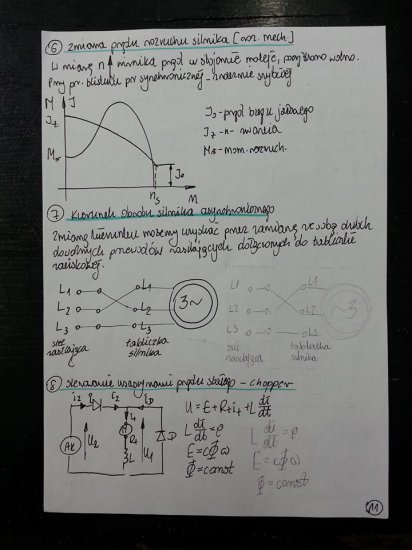 ⑥ zmiana prądu rozruchu silnika [char. mech.]
W miarę n↑ silnika prąd w stojanie maleje, początkowo wolno.
Przy pr. bliskiej pr synchronicznej - znacznie szybciej
M I
Iz
Mr
I0
ns
n
I0 - prąd biegu jałowego
Iz - " - zwarcia
Mr - mom. rozruch.
⑦ Kierunek obrotu silnika asynchronicznego
Zmianę kierunku możemy uzyskać przez zamianę ze sobą dwóch
dowolnych przewodów zasilających dołączonych do tabliczki
zaciskowej.
L1 L1
L2 L2
L3 L3
3~
sieć zasilająca
tabliczka silnika
L1 L1
L2 L2
L3 L3
3~
sieć zasilająca
tabliczka silnika
⑧ sterowanie maszynami prądu stałego - chopper
U = E + Rtit + L di/dt
L di/dt = 0
E = cΦω
Φ = const
L di/dt = 0
E = cΦω
Φ = const
i2 iD it Rt L D AK U2 U1
11